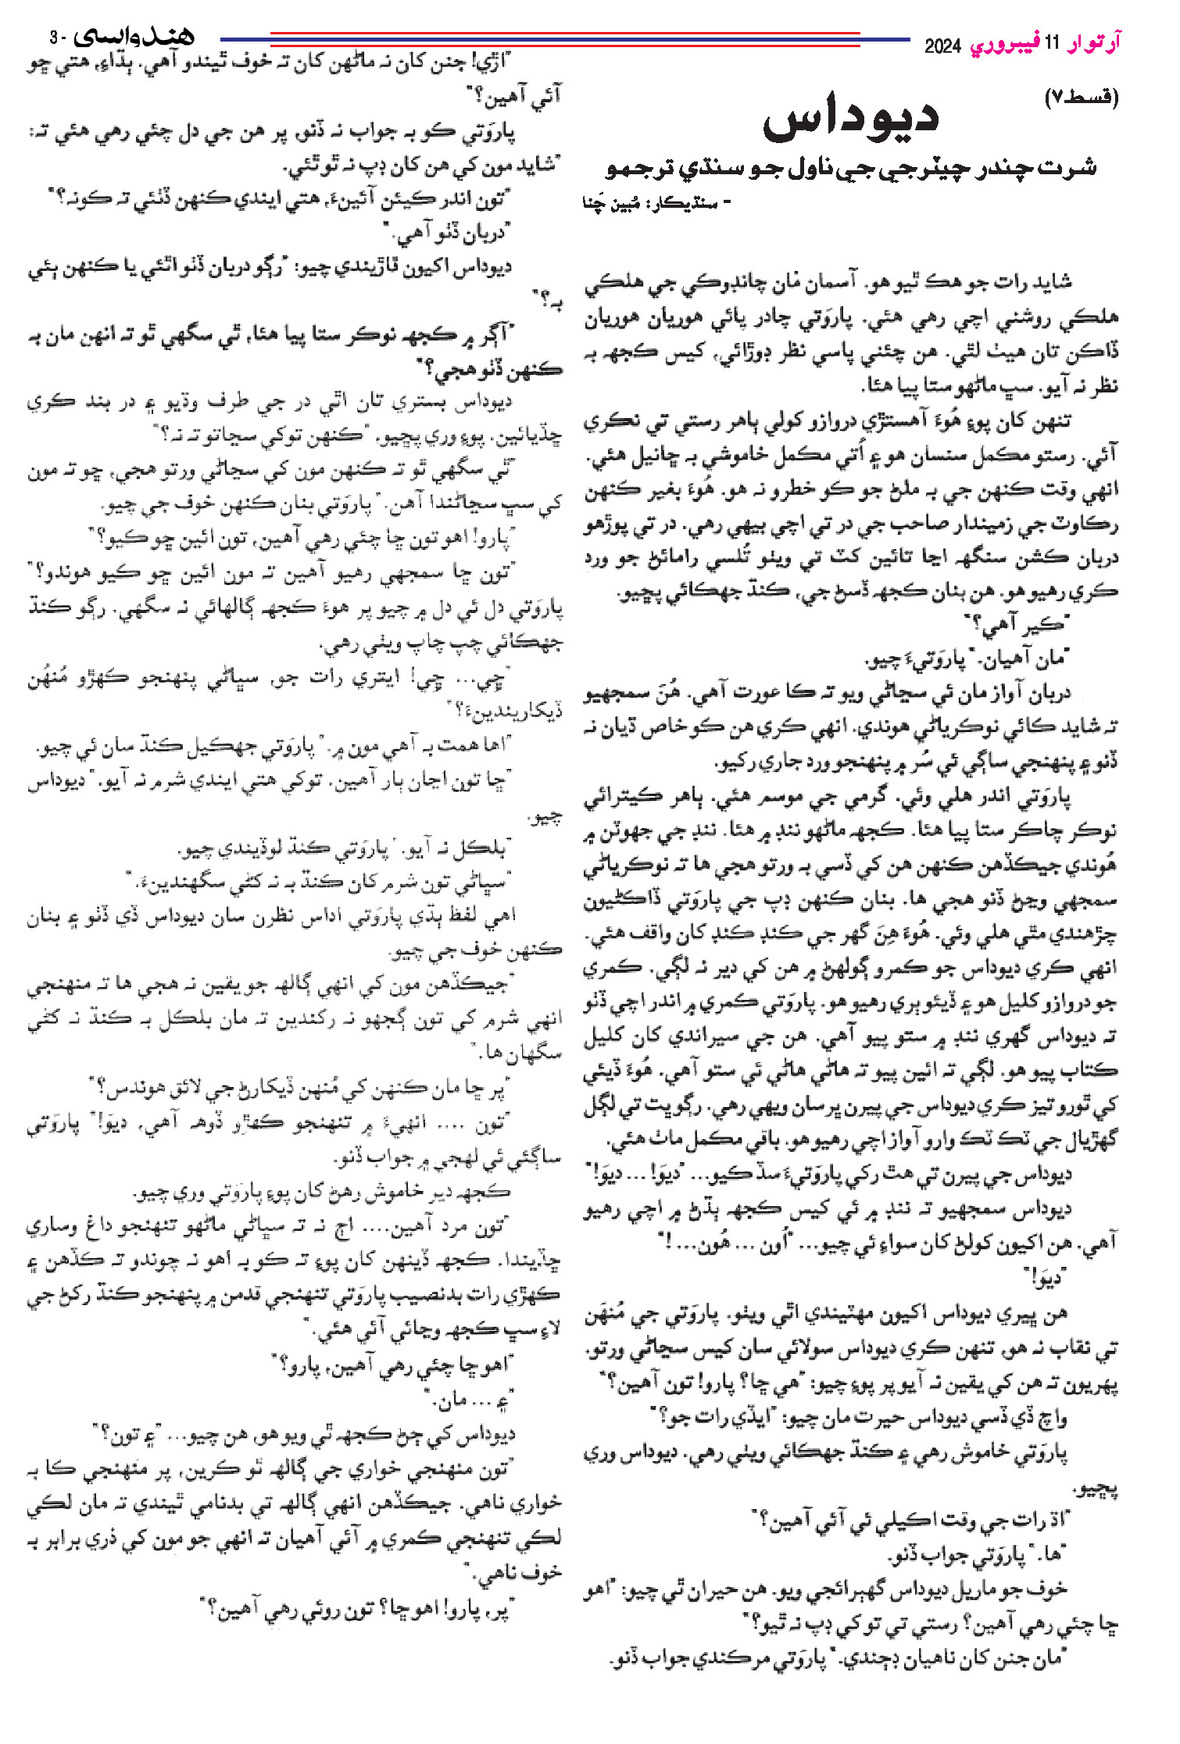 آرتوار 11 فيبروري 2024
هندواسي - 3
(قسط ۷)
ديوداس
شرت چندر چيٽرجي جي ناول جو سنڌي ترجمو
- سنڌيڪار: مُبين چَنا
شايد رات جو هڪ ٿيو هو. آسمان مٿان چانڊوڪي جي هلڪي
هلڪي روشني اچي رهي هئي. پارَوَتي چادر پائي هوريان هوريان
ڏاڪن تان هيٺ لٿي. هن چئني پاسي نظر ڊوڙائي، کيس ڪجهہ بہ
نظر نہ آيو. سڀ ماڻهو ستا پيا هئا.
تنهن کان پوءِ هُوءَ آهستڙي دروازو کولي ٻاهر رستي تي نڪري
آئي. رستو مڪمل سنسان هو ۽ اُتي مڪمل خاموشي بہ ڇانيل هئي.
انهي وقت ڪنهن جي بہ ملڻ جو ڪو خطرو نہ هو. هُوءَ بغير ڪنهن
رڪاوٽ جي زميندار صاحب جي در تي اچي بيهي رهي. در تي پوڙهو
دربان ڪشن سنگهہ اڃا تائين کٽ تي ويٺو تُلسي رامائڻ جو ورد
ڪري رهيو هو. هن بنان ڪجهہ ڏسڻ جي، ڪنڌ جهڪائي پڇيو.
"ڪير آهي؟"
"مان آهيان." پارَوَتيءَ چيو.
دربان آواز مان ئي سڃاڻي ويو تہ ڪا عورت آهي. هُنَ سمجهيو
تہ شايد ڪائي نوڪرياڻي هوندي. انهي ڪري هن ڪو خاص ڌيان نہ
ڏنو ۽ پنهنجي ساڳي ئي سُر ۾ پنهنجو ورد جاري رکيو.
پارَوَتي اندر هلي وئي. گرمي جي موسم هئي. ٻاهر ڪيترائي
نوڪر چاڪر ستا پيا هئا. ڪجهہ ماڻهو ننڊ ۾ هئا. ننڊ جي جهوٽن ۾
هُوندي جيڪڏهن ڪنهن هن کي ڏسي بہ ورتو هجي ها تہ نوڪرياڻي
سمجهي وڃڻ ڏنو هجي ها. بنان ڪنهن ڊپ جي پارَوَتي ڏاڪڻيون
چڙهندي مٿي هلي وئي. هُوءَ هِنَ گهر جي ڪنڊ ڪنڊ کان واقف هئي.
انهي ڪري ديوداس جو ڪمرو ڳولهڻ ۾ هن کي دير نہ لڳي. ڪمري
جو دروازو کليل هو ۽ ڏيئو ٻري رهيو هو. پارَوَتي ڪمري ۾ اندر اچي ڏٺو
تہ ديوداس گهري ننڊ ۾ ستو پيو آهي. هن جي سيراندي کان کليل
ڪتاب پيو هو. لڳي تہ ائين پيو تہ هاڻي هاڻي ئي ستو آهي. هُوءَ ڏيئي
کي ٿورو تيز ڪري ديوداس جي پيرن ڀرسان ويهي رهي. رڳو ڀت تي لڳل
گهڙيال جي ٽڪ ٽڪ وارو آواز اچي رهيو هو. باقي مڪمل ماٺ هئي.
ديوداس جي پيرن تي هٿ رکي پارَوَتيءَ سڏ ڪيو... "ديوَ! ... ديوَ!"
ديوداس سمجهيو تہ ننڊ ۾ ئي کيس ڪجهہ ٻڌڻ ۾ اچي رهيو
آهي. هن اکيون کولڻ کان سواءِ ئي چيو... "اُون ... هُون... !"
"ديوَ!"
هن ڀيري ديوداس اکيون مهٽيندي اٿي ويٺو. پارَوَتي جي مُنهَن
تي نقاب نہ هو، تنهن ڪري ديوداس سولائي سان کيس سڃاڻي ورتو.
پهريون تہ هن کي يقين نہ آيو پر پوءِ چيو: "هي ڇا؟ پارو! تون آهين؟"
واچ ڏي ڏسي ديوداس حيرت مان چيو: "ايڏي رات جو؟"
پارَوَتي خاموش رهي ۽ ڪنڌ جهڪائي ويٺي رهي. ديوداس وري
پڇيو.
"اڌ رات جي وقت اڪيلي ئي آئي آهين؟"
"ها." پارَوَتي جواب ڏنو.
خوف جو ماريل ديوداس گهٻرائجي ويو. هن حيران ٿي چيو: "اهو
ڇا چئي رهي آهين؟ رستي تي توکي ڊپ نہ ٿيو؟"
"مان جنن کان ناهيان ڊڄندي." پارَوَتي مرڪندي جواب ڏنو.
"اڙي! جنن کان نہ ماڻهن کان تہ خوف ٿيندو آهي. ٻڌاءِ، هتي ڇو
آئي آهين؟"
پارَوَتي ڪو بہ جواب نہ ڏنو، پر هن جي دل چئي رهي هئي تہ:
"شايد مون کي هن کان ڊپ نہ ٿو ٿئي.
"تون اندر ڪيئن آئينءَ، هتي ايندي ڪنهن ڏٺئي تہ ڪونہ؟"
"دربان ڏٺو آهي."
ديوداس اکيون ڦاڙيندي چيو: "رڳو دربان ڏٺو اٿئي يا ڪنهن ٻئي
بہ؟"
"اڳر ۾ ڪجهہ نوڪر ستا پيا هئا، ٿي سگهي ٿو تہ انهن مان بہ
ڪنهن ڏٺو هجي؟"
ديوداس بستري تان اٿي در جي طرف وڌيو ۽ در بند ڪري
ڇڏيائين. پوءِ وري پڇيو. "ڪنهن توکي سڃاتو تہ نہ؟"
"ٿي سگهي ٿو تہ ڪنهن مون کي سڃاڻي ورتو هجي، ڇو تہ مون
کي سڀ سڃاڻندا آهن." پارَوَتي بنان ڪنهن خوف جي چيو.
"پارو! اهو تون ڇا چئي رهي آهين، تون ائين ڇو ڪيو؟"
"تون ڇا سمجهي رهيو آهين تہ مون ائين ڇو ڪيو هوندو؟"
پارَوَتي دل ئي دل ۾ چيو پر هوءَ ڪجهہ ڳالهائي نہ سگهي. رڳو ڪنڌ
جهڪائي چپ چاپ ويٺي رهي.
"ڇي... ڇي! ايتري رات جو، سڀاڻي پنهنجو ڪهڙو مُنهُن
ڏيکاريندينءَ؟"
"اها همت بہ آهي مون ۾." پارَوَتي جهڪيل ڪنڌ سان ئي چيو.
"ڇا تون اڃان ٻار آهين. توکي هتي ايندي شرم نہ آيو." ديوداس
چيو.
"بلڪل نہ آيو." پارَوَتي ڪنڌ لوڏيندي چيو.
"سڀاڻي تون شرم کان ڪنڌ بہ نہ کڻي سگهندينءَ."
اهي لفظ ٻڌي پارَوَتي اداس نظرن سان ديوداس ڏي ڏٺو ۽ بنان
ڪنهن خوف جي چيو.
"جيڪڏهن مون کي انهي ڳالهہ جو يقين نہ هجي ها تہ منهنجي
انهي شرم کي تون ڳجهو نہ رکندين تہ مان بلڪل بہ ڪنڌ نہ کڻي
سگهان ها."
"پر ڇا مان ڪنهن کي مُنهن ڏيکارڻ جي لائق هوندس؟"
"تون .... انهيءَ ۾ تنهنجو ڪهڙو ڏوهہ آهي، ديوَ!" پارَوَتي
ساڳئي ئي لهجي ۾ جواب ڏنو.
ڪجهہ دير خاموش رهڻ کان پوءِ پارَوَتي وري چيو.
"تون مرد آهين.... اڄ نہ تہ سڀاڻي ماڻهو تنهنجو داغ وساري
ڇڏيندا. ڪجهہ ڏينهن کان پوءِ تہ ڪو بہ اهو نہ چوندو تہ ڪڏهن ۽
ڪهڙي رات بدنصيب پارَوَتي تنهنجي قدمن ۾ پنهنجو ڪنڌ رکڻ جي
لاءِ سڀ ڪجهہ وڃائي آئي هئي."
"اهو ڇا چئي رهي آهين، پارو؟"
"۽ ... مان."
ديوداس کي ڄڻ ڪجهہ ٿي ويو هو، هن چيو... "۽ تون؟"
"تون منهنجي خواري جي ڳالهہ ٿو ڪرين، پر منهنجي ڪا بہ
خواري ناهي. جيڪڏهن انهي ڳالهہ تي بدنامي ٿيندي تہ مان لڪي
لڪي تنهنجي ڪمري ۾ آئي آهيان تہ انهي جو مون کي ذري برابر بہ
خوف ناهي."
"پر، پارو! اهو ڇا؟ تون روئي رهي آهين؟"